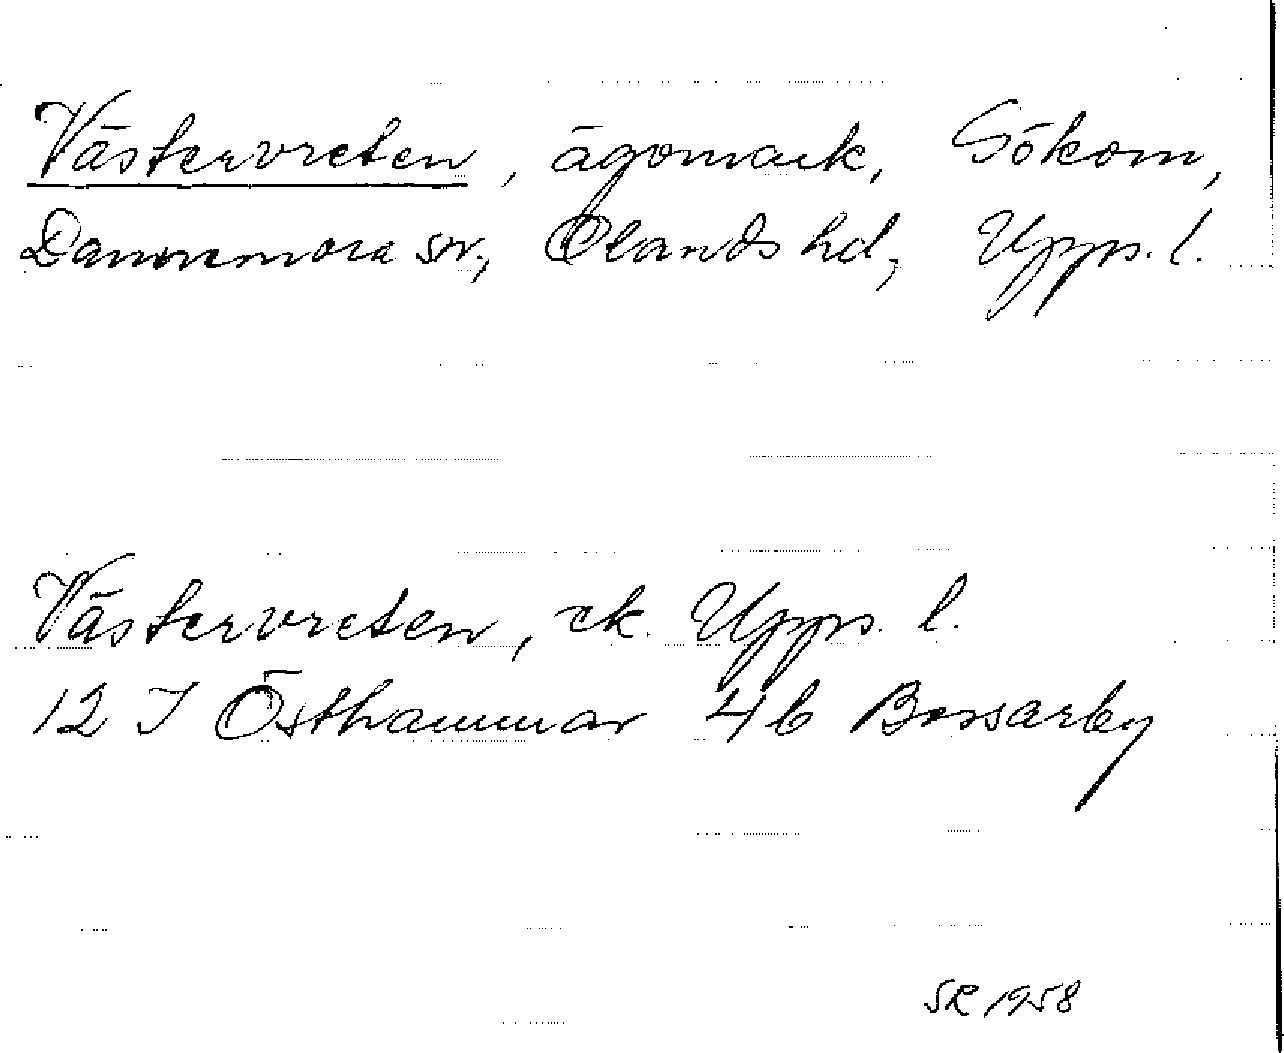 Västervreten, ägomark, Sökom,
Dannemora sn., Olands hd, Upps. l.
Västervreten, ek. Upps. l.
12 I Östhammar 4 b Bossarby
SR 1958